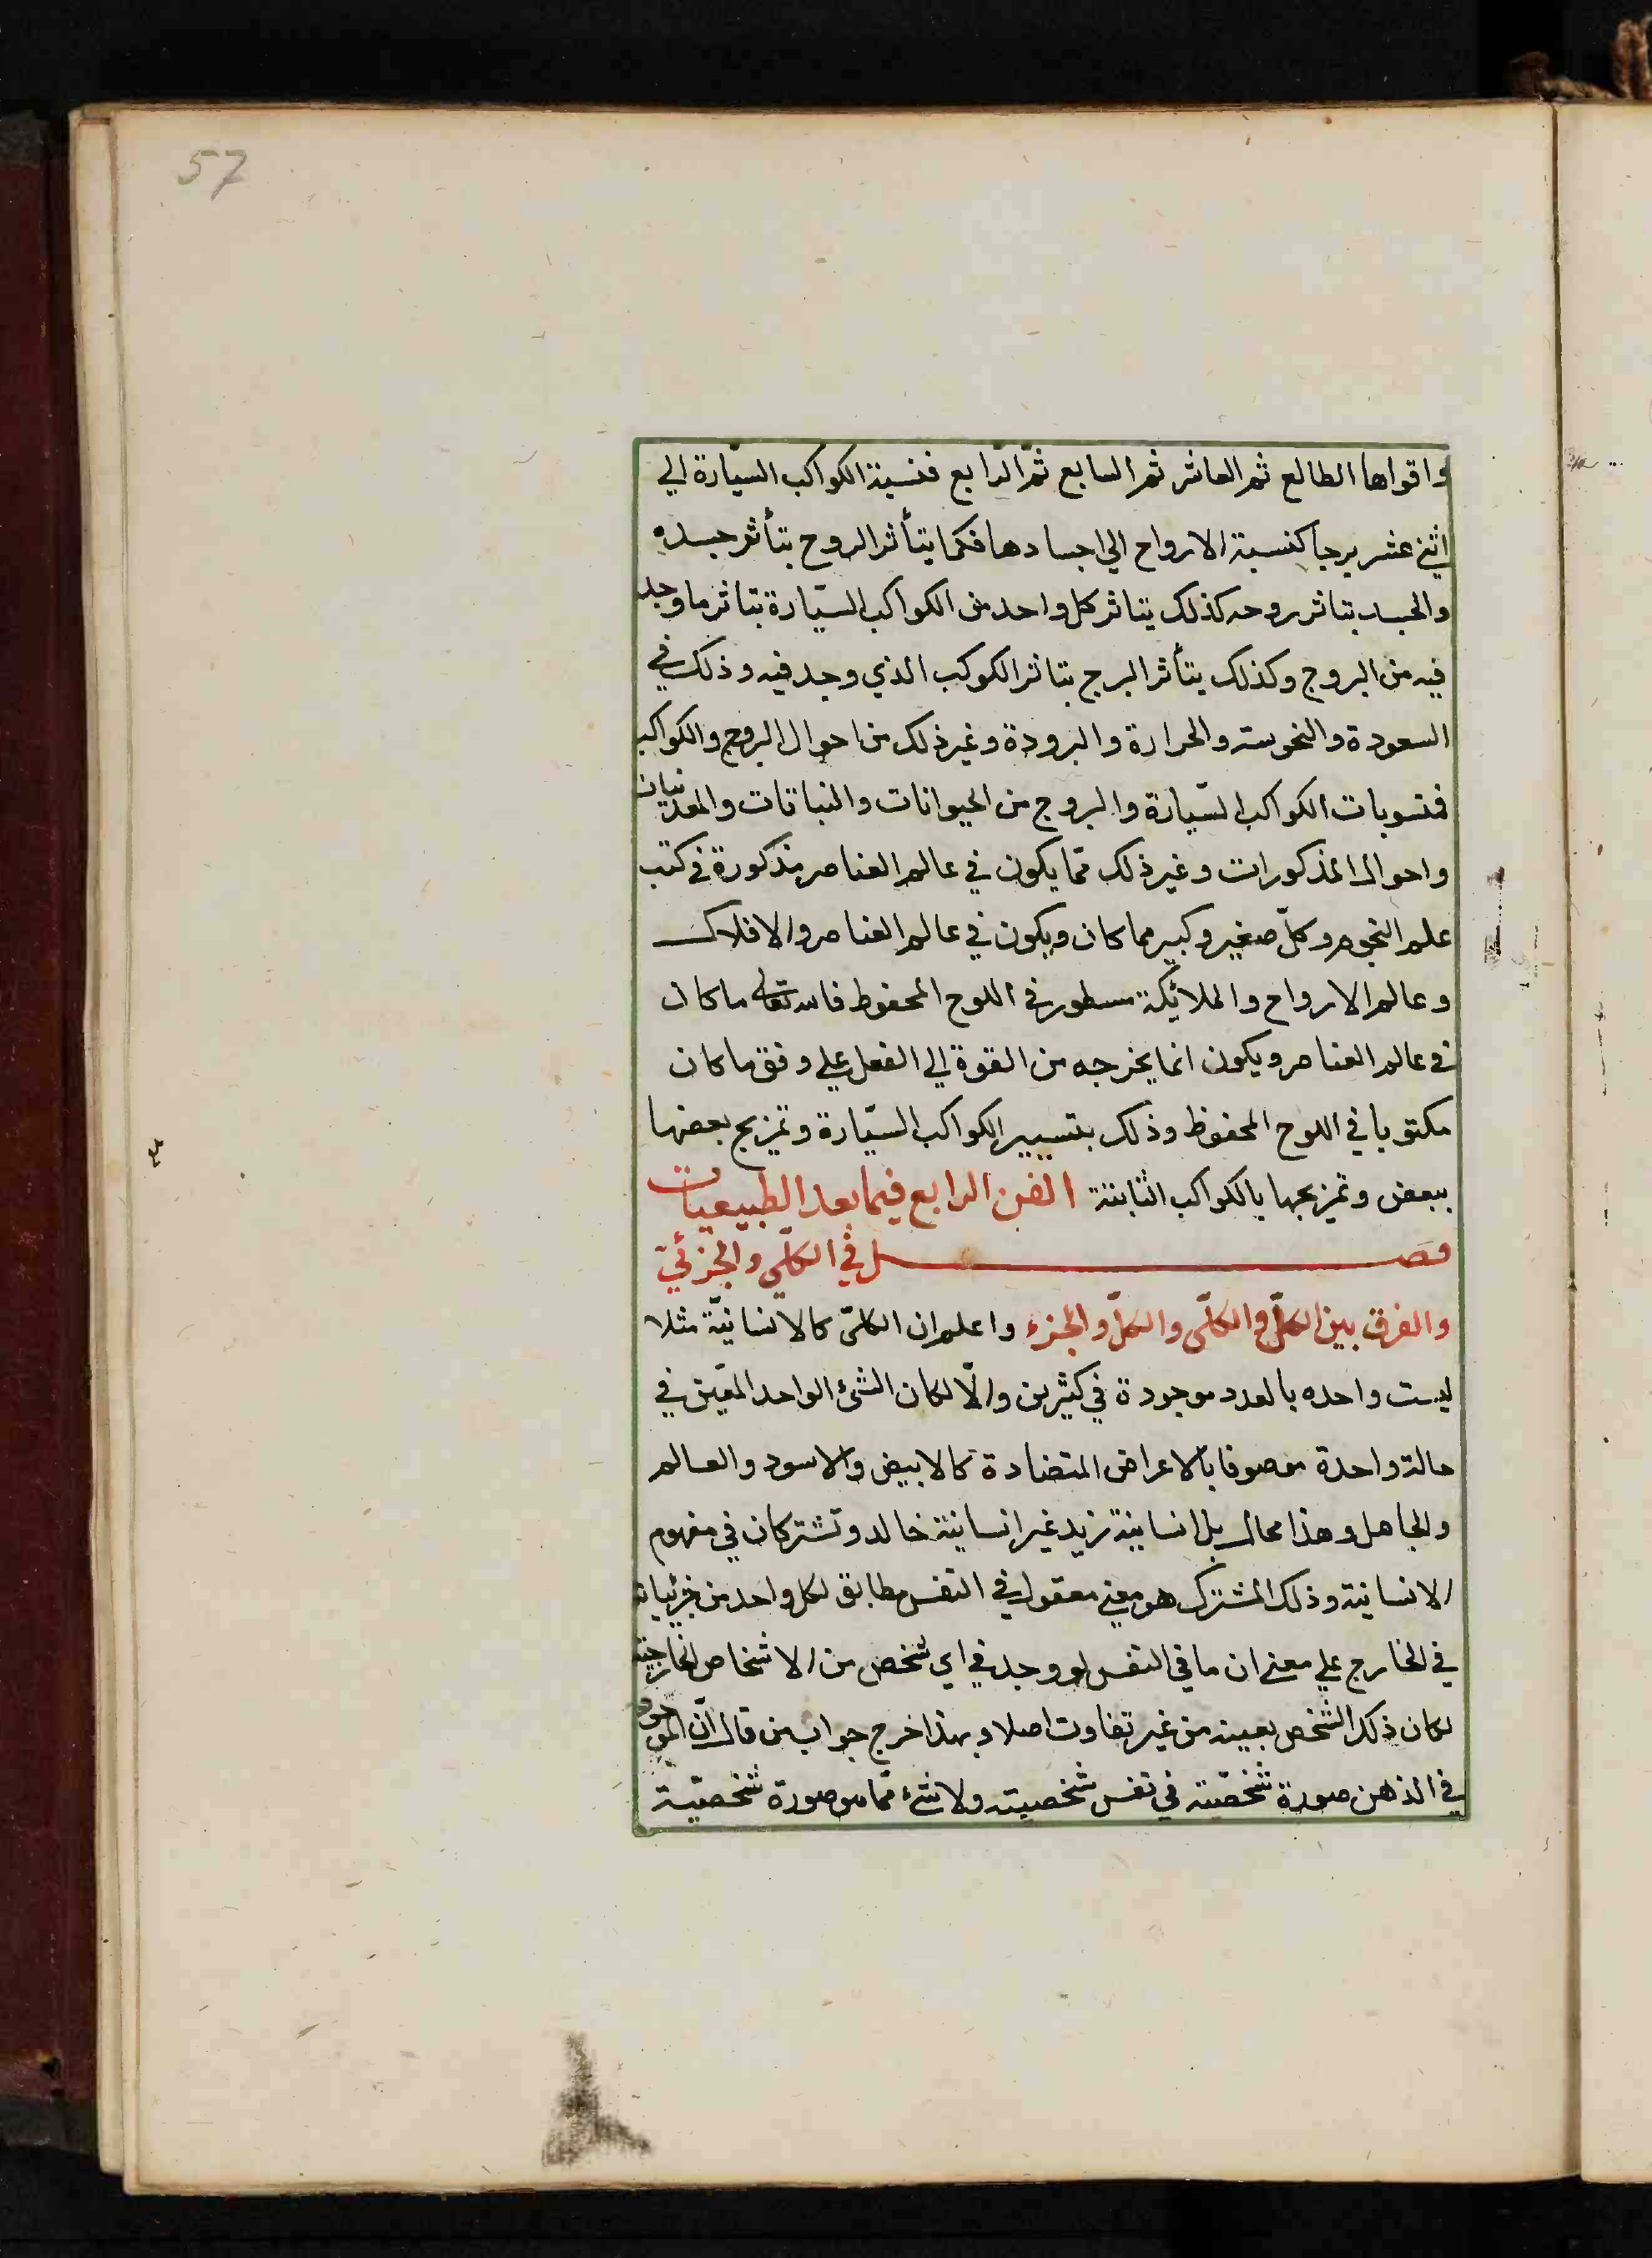 57
واقواها الطالع ثم العاشر ثم السابع ثم الرابع فنسبة الكواكب السيّارة الي
اثني عشر برجا كنسبة الارواح الي اجسادها فكما يتأثر الروح بتأثر جسده
والجسد بتاثر روحه كذلك يتاثر كل واحد من الكواكب السيّارة بتاثر ما وجد
فيه من البروج وكذلك يتأثر البرج بتاثر الكوكب الذي وجد فيه وذلك في
السعودة والنحوسة والحرارة والبرودة وغير ذلك من احوال البروج والكواكب
فمنسوبات الكواكب السّيارة والبروج من الحيوانات والنباتات والمعدنيات
واحوال المذكورات وغير ذلك ممّا يكون في عالم العناصر مذكورة في كتب
علم النجوم وكلّ صغير وكبير مما كان ويكون في عالم العناصر والافلاك
وعالم الارواح والملائكة مسطور في اللوح المحفوظ فالله تعالى ما كان
في عالم العناصر ويكون انما يخرجه من القوة الي الفعل علي وفق ما كان
مكتوبا في اللوح المحفوظ وذلك بتسيير الكواكب السيّارة وتمزيج بعضها
ببعض وتمزيجها بالكواكب الثابتة الفن الرابع فيما بعد الطبيعيات
فصل في الكلّي والجزئي
والفرق بين الكلّ والكلّي والكلّ والجزء واعلم ان الكلّي كالانسانيّة مثلا
ليست واحده بالعدد موجودة في كثيرين والّا لكان الشئ الواحد المعّين في
حالة واحدة موصوفا بالاعراض المتضادة كالابيض والاسود والعالم
والجاهل وهذا محال بل انسانية زيد غير انسانية خالد وتشتركان في مفهوم
الانسانية وذلك المشترك هو معني معقول في النفس مطابق لكل واحد من جزئياته
في الخارج علي معني ان ما في النفس لو وجد في اي شخص من الاشخاص الخارجية
لكان ذلك الشخص بعينه من غير تفاوت اصلا وبهذا خرج جواب من قال انّ الموجود
في الذهن صورة شخصّية في نفس شخصيته ولا شئ ممّا هو صورة شخصّية